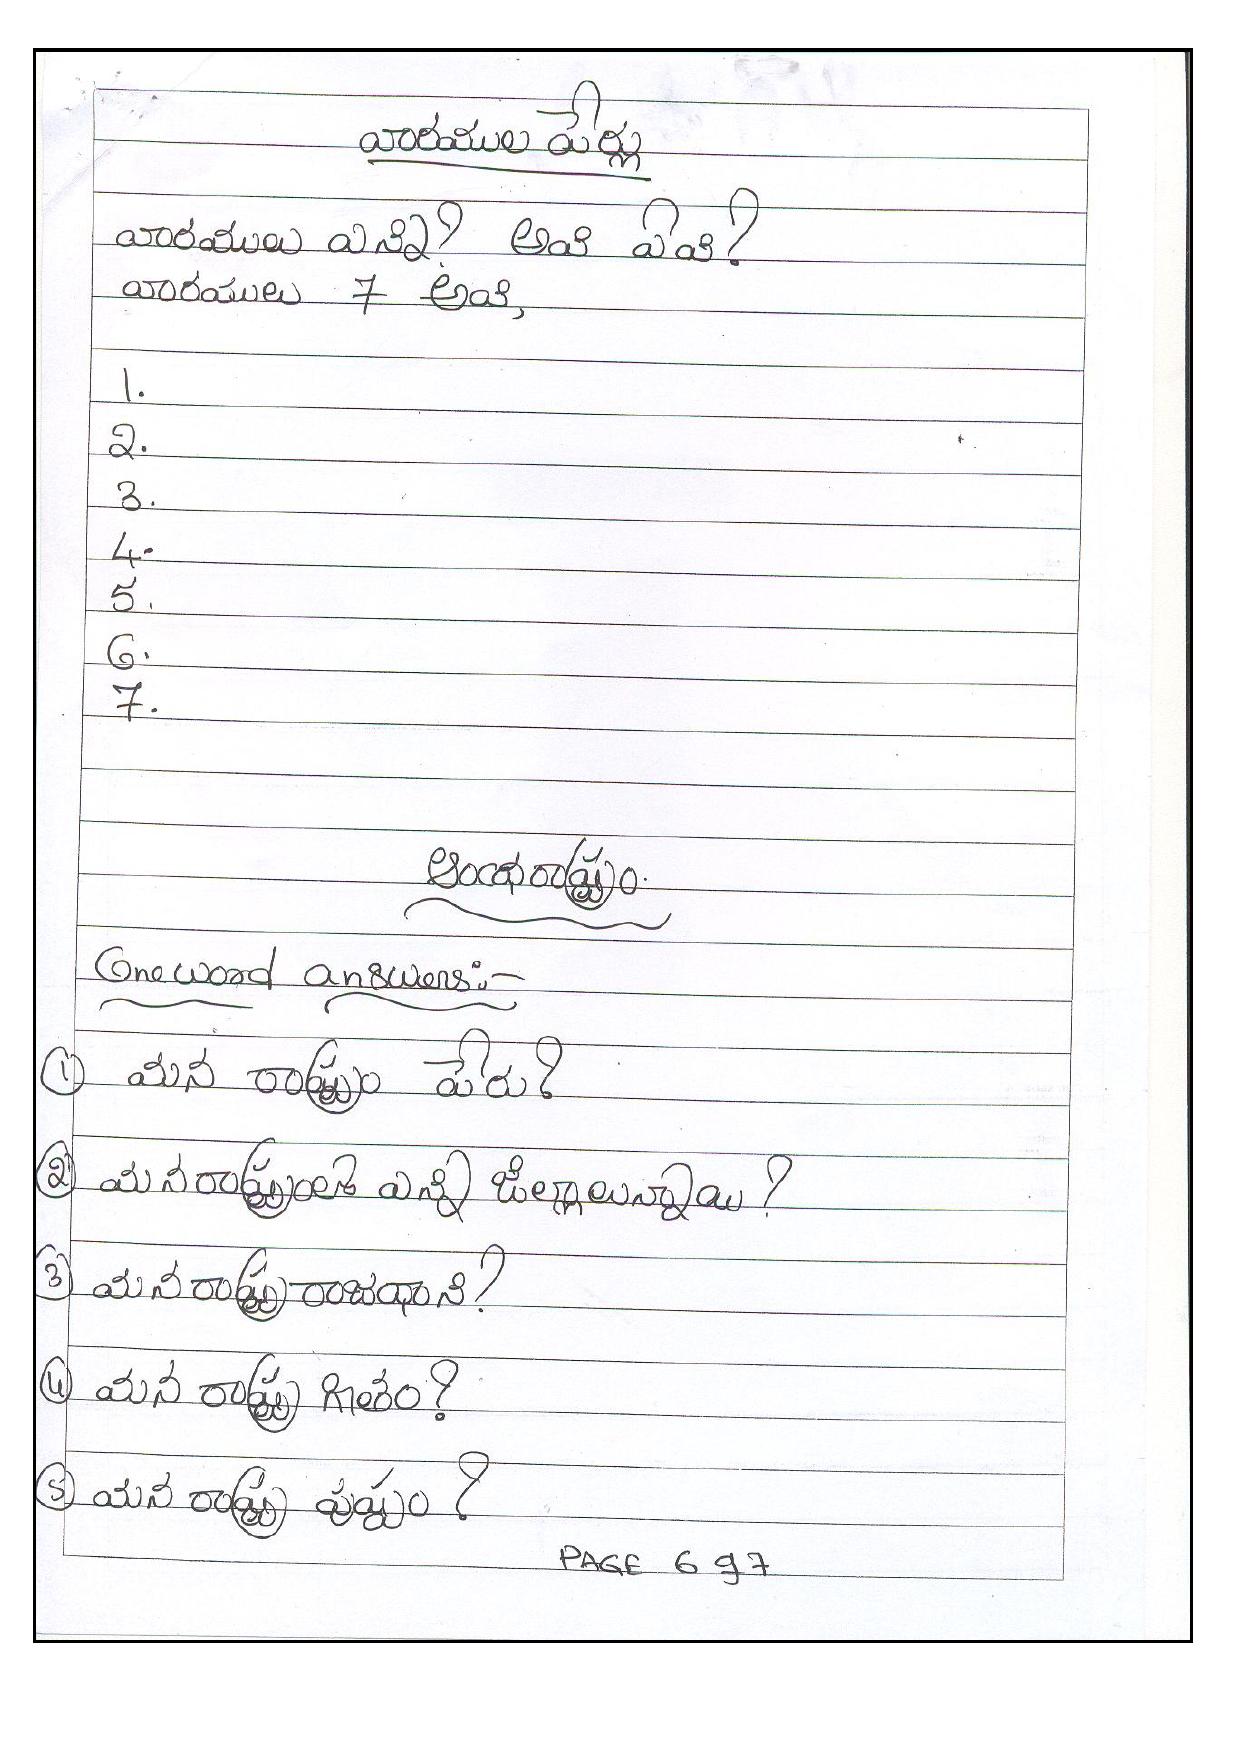 వారముల పేర్లు
వారములు ఎన్ని? అవి ఏవి?
వారములు 7 అవి,
1.
2.
3.
4.
5.
6.
7.
ఆంధ్రరాష్ట్రం.
One word answers:-
1 మన రాష్ట్రం పేరు?
2 మనరాష్ట్రంలో ఎన్ని జిల్లాలున్నాయి?
3 మనరాష్ట్ర రాజధాని?
4 మన రాష్ట్ర గీతం?
5 మన రాష్ట్ర పుష్పం?
PAGE 6 & 7